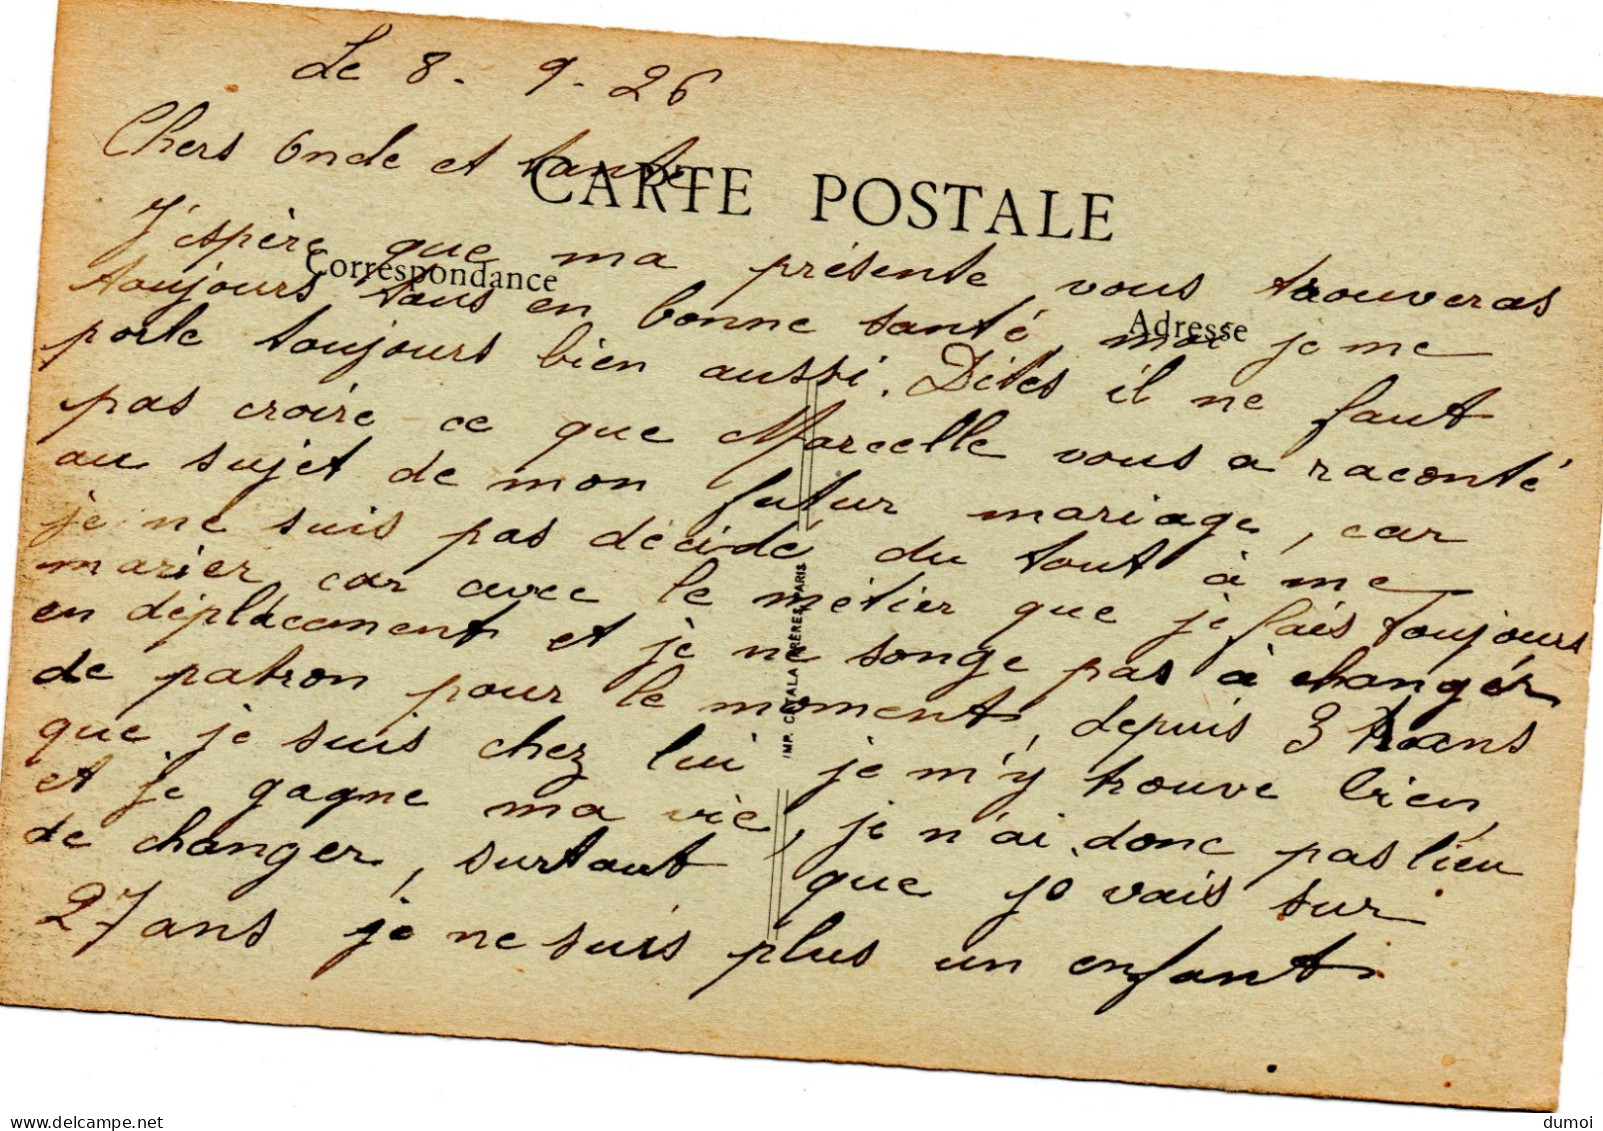 Le 8. 9. 26
Chers Oncle et tante
CARTE POSTALE
J'espère que ma présente vous trouveras
Correspondance
toujours tous en bonne santé, moi je me
Adresse
porte toujours bien aussi. Dites il ne faut
pas croire ce que Marcelle vous a raconté
au sujet de mon futur mariage, car
je ne suis pas décidé du tout à me
marier, car avec le métier que je fais toujours
en déplacement et je ne songe pas à changér
de patron pour le moment, depuis 3 ans
que je suis chez lui je m'y trouve bien,
et je gagne ma vie, je n'ai donc pas lieu
de changer, surtout que je vais sur
27 ans je ne suis plus un enfant.
IMP. CATALA FRÈRES, PARIS
dumoi